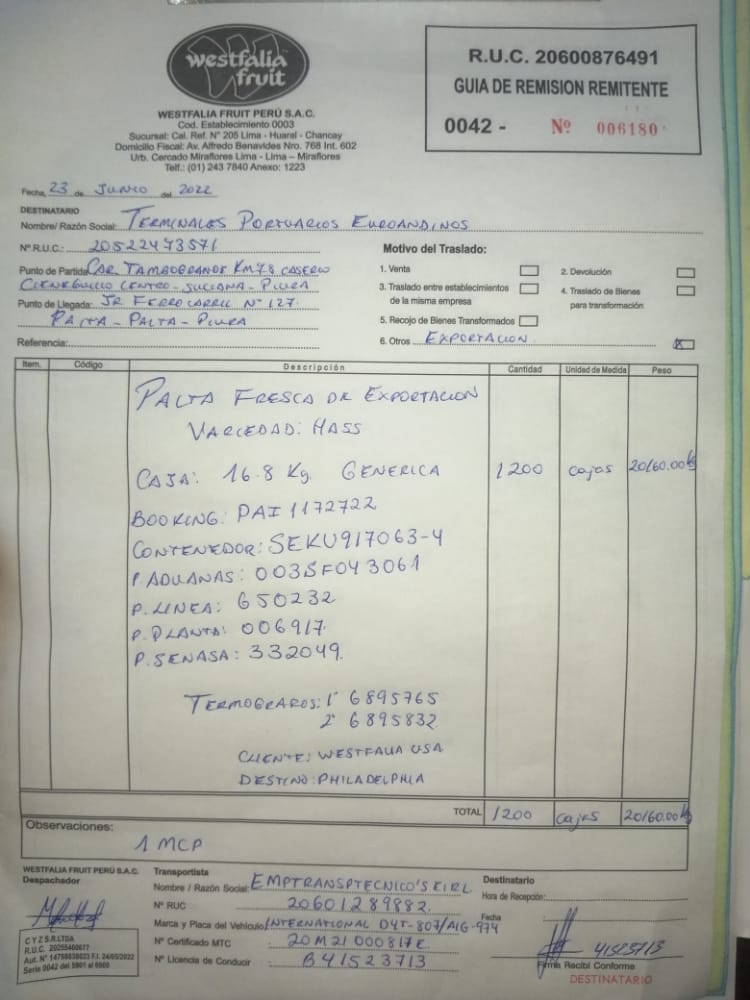 westfalia
fruit
WESTFALIA FRUIT PERÚ S.A.C.
Cod. Establecimiento 0003
Sucursal: Cal. Ref. N° 205 Lima - Huaral - Chancay
Domicilio Fiscal: Av. Alfredo Benavides Nro. 768 Int. 602
Urb. Cercado Miraflores Lima - Lima – Miraflores
Telf.: (01) 243 7840 Anexo: 1223
R.U.C. 20600876491
GUIA DE REMISION REMITENTE
0042 - Nº 006180
Fecha, 23 de JUNIO del 2022
DESTINATARIO
Nombre/ Razón Social: TERMINALES PORTUARIOS EUROANDINOS
N° R.U.C.: 20522473571
Punto de Partida: CAR. TAMBOGRANDE KM 7.8 CASERIO
CIENEGUILLO CENTRO - SULLANA - PIURA
Punto de Llegada: JR FERROCARRIL N° 127.
PAITA - PAITA - PIURA
Referencia:
Motivo del Traslado:
1. Venta
2. Devolución
3. Traslado entre establecimientos
de la misma empresa
4. Traslado de Bienes
para transformación
5. Recojo de Bienes Transformados
6. Otros EXPORTACION X
Item. Código Descripción Cantidad Unidad de Medida Peso
PALTA FRESCA DE EXPORTACION
VARIEDAD: HASS
CAJA: 16.8 Kg. GENERICA 1200 cajas 20160.00 kg
BOOKING: PAI 1172722
CONTENEDOR: SEKU917063-4
P. ADUANAS: 003SF043061
P. LINEA: 650232
P. PLANTA: 006917.
P. SENASA: 332049.
TERMOGRAFOS: 1° 6895765
2° 6895832
CLIENTE: WESTFALIA USA
DESTINO: PHILADELPHIA
TOTAL 1200 cajas 20160.00 kg
Observaciones:
1 MCP
WESTFALIA FRUIT PERÚ S.A.C.
Despachador
C Y Z S.R.LTDA
R.U.C. 20255460677
Serie 0042 del 5901 al 6900
Transportista
Nombre / Razón Social: EMPTRANSPTECNICO'S EIRL
N° RUC 20601289882.
Marca y Placa del Vehículo INTERNATIONAL D4T-807/AIG-974
N° Certificado MTC 20M21000817E
N° Licencia de Conducir B41523713
Destinatario
Hora de Recepción:
Fecha
41523713
Firma Recibí Conforme
DESTINATARIO